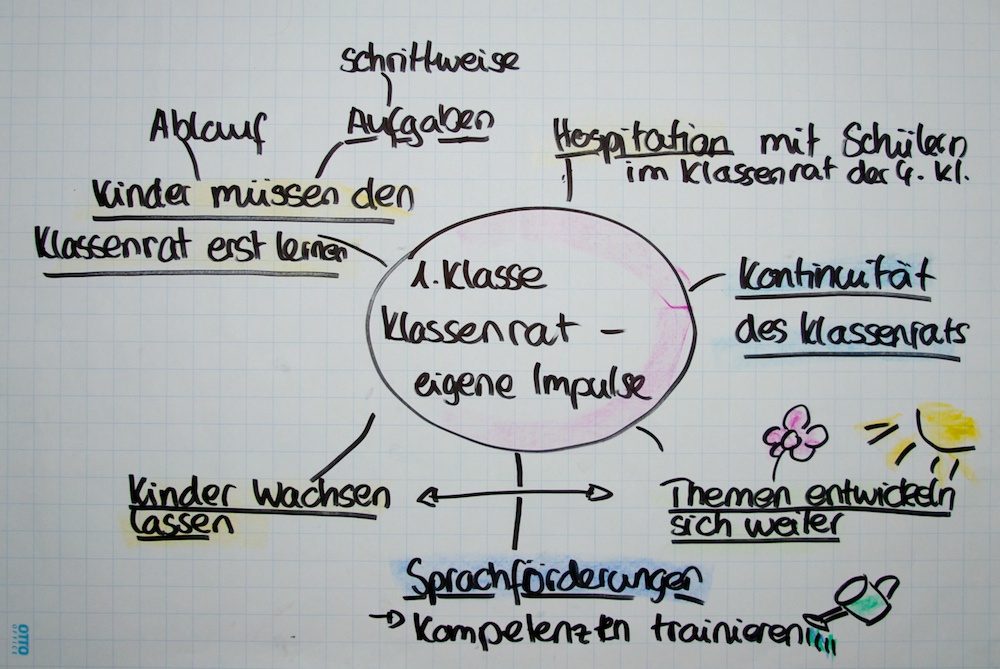 schrittweise
Ablauf
Aufgaben
Kinder müssen den
Klassenrat erst lernen
Hospitation mit Schülern
im Klassenrat der 4. Kl.
1. Klasse
Klassenrat –
eigene Impulse
Kontinuität
des Klassenrats
Kinder wachsen
lassen
Themen entwickeln
sich weiter
Sprachförderungen
→ Kompetenzen trainieren
OTTO
OFFICE